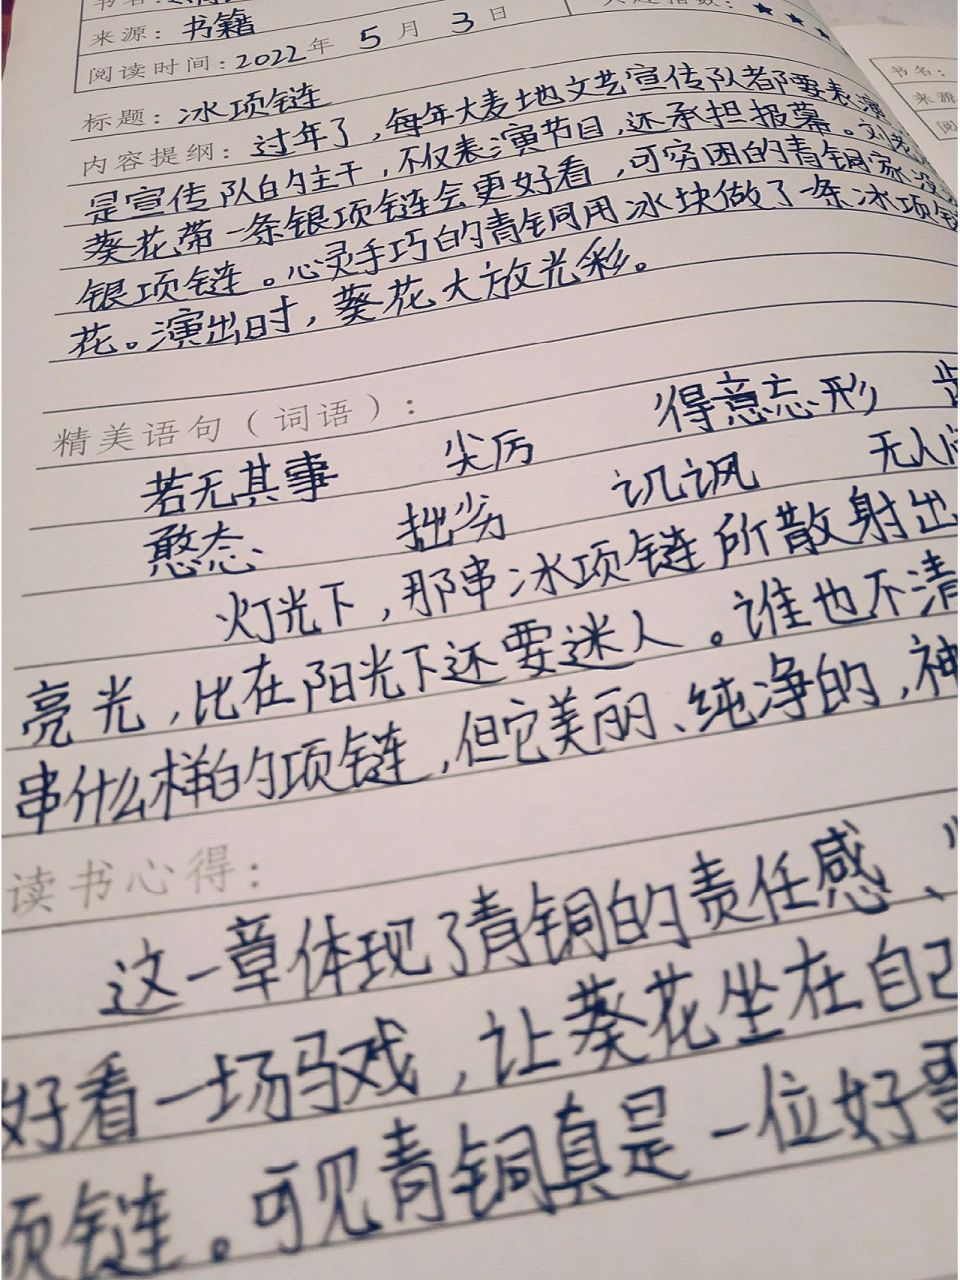 书名:
来源: 书籍
兴趣指数: ★ ★ ★
阅读时间: 2022年 5 月 3 日
标题: 冰项链
内容提纲: 过年了,每年大麦地文艺宣传队都要表演
是宣传队的主干,不仅表演节目,还承担报幕。刘老
葵花带一条银项链会更好看,可穷困的青铜家没
银项链。心灵手巧的青铜用冰块做了一条冰项链
花。演出时,葵花大放光彩。
精美语句(词语):
若无其事 尖厉 得意忘形
憨态 拙劣 讥讽 无人问
灯光下,那串冰项链所散射出
亮光,比在阳光下还要迷人。谁也不清
串什么样的项链,但它美丽、纯净的,神
读书心得:
这一章体现了青铜的责任感、
好看一场马戏,让葵花坐在自己
项链。可见青铜真是一位好哥
书名:
来源
阅